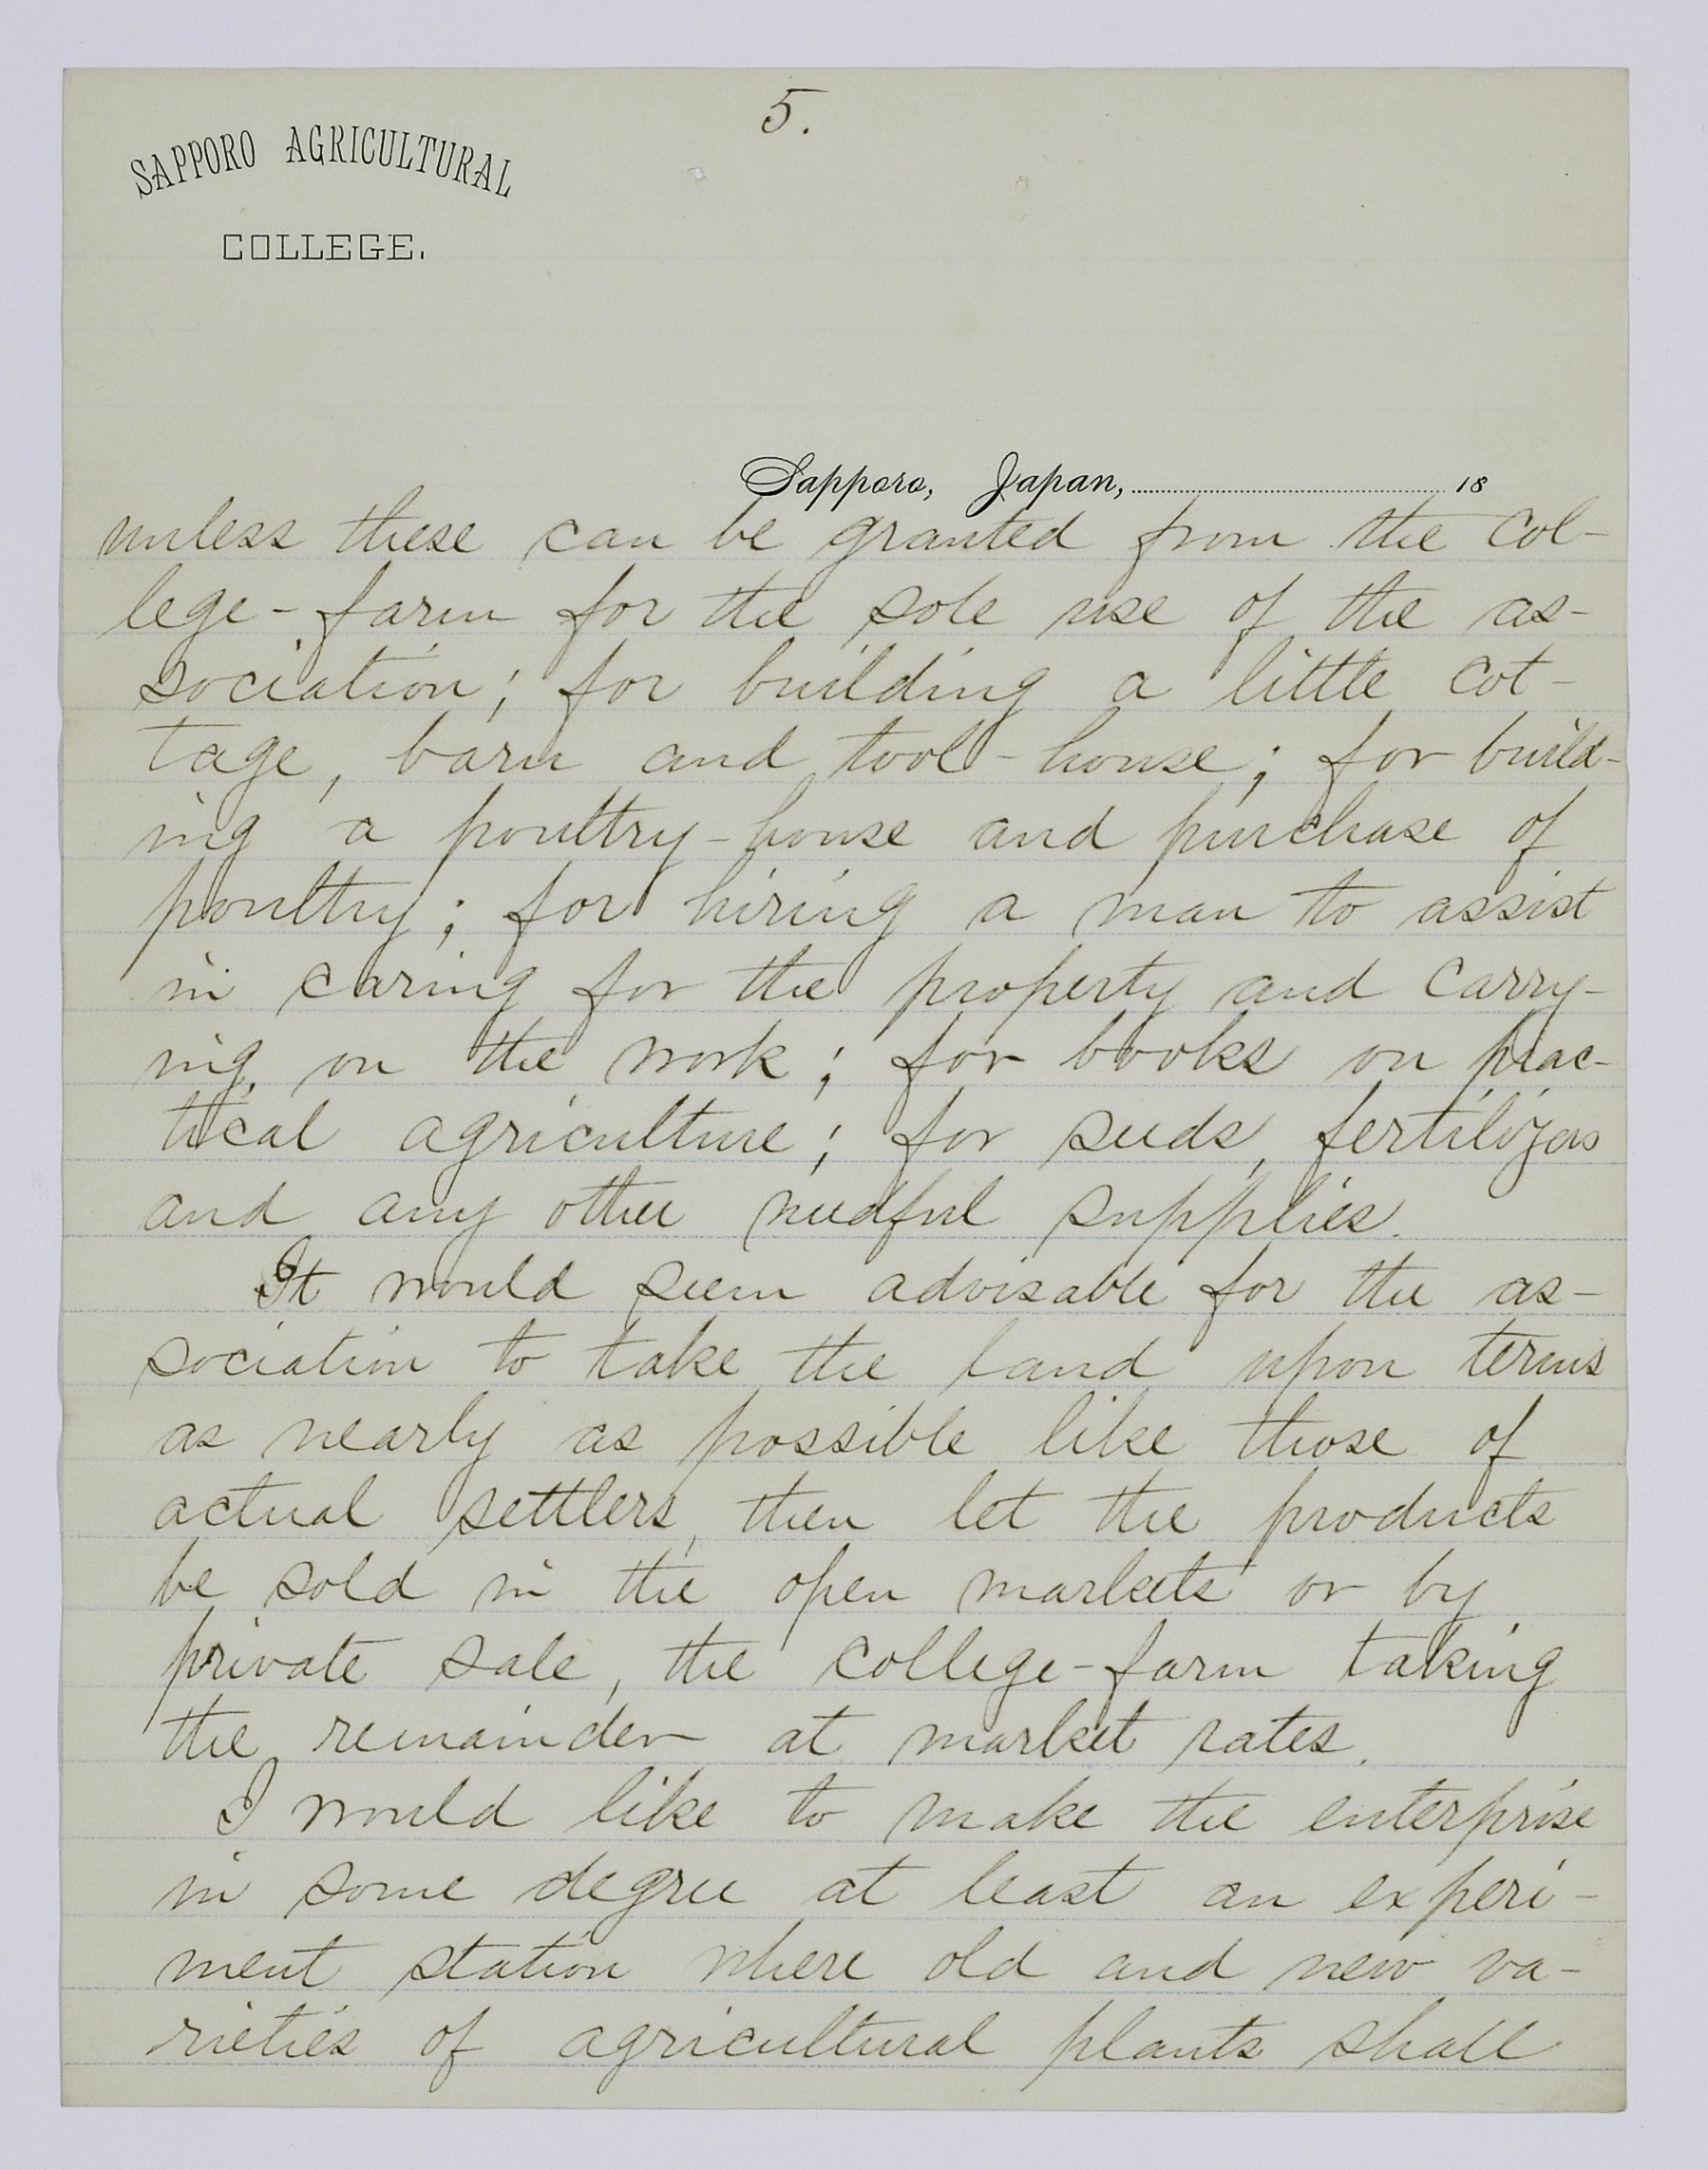 5.
SAPPORO AGRICULTURAL
COLLEGE.
Sapporo, Japan, 18
unless these can be granted from the col-
lege-farm for the sole use of the as-
sociation; for building a little cot-
tage, barn and tool-house; for build-
ing a poultry-house and purchase of
poultry; for hiring a man to assist
in caring for the property and carry-
ing on the work; for books on prac-
tical agriculture; for seeds, fertilizers
and any other needful supplies.
It would seem advisable for the as-
sociation to take the land upon terms
as nearly as possible like those of
actual settlers, then let the products
be sold in the open markets or by
private sale, the college-farm taking
the remainder at market rates.
I would like to make the enterprise
in some degree at least an experi-
ment station where old and new va-
rieties of agricultural plants shall